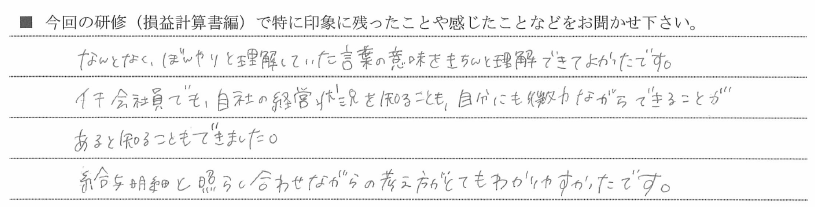 ■ 今回の研修（損益計算書編）で特に印象に残ったことや感じたことなどをお聞かせ下さい。
なんとなく、ぼんやりと理解していた言葉の意味をきちんと理解できてよかったです。
イチ会社員でも、自社の経営状況を知ることも、自分にも微力ながらできることが
あると知ることもできました。
給与明細と照らし合わせながらの考え方がとてもわかりやすかったです。